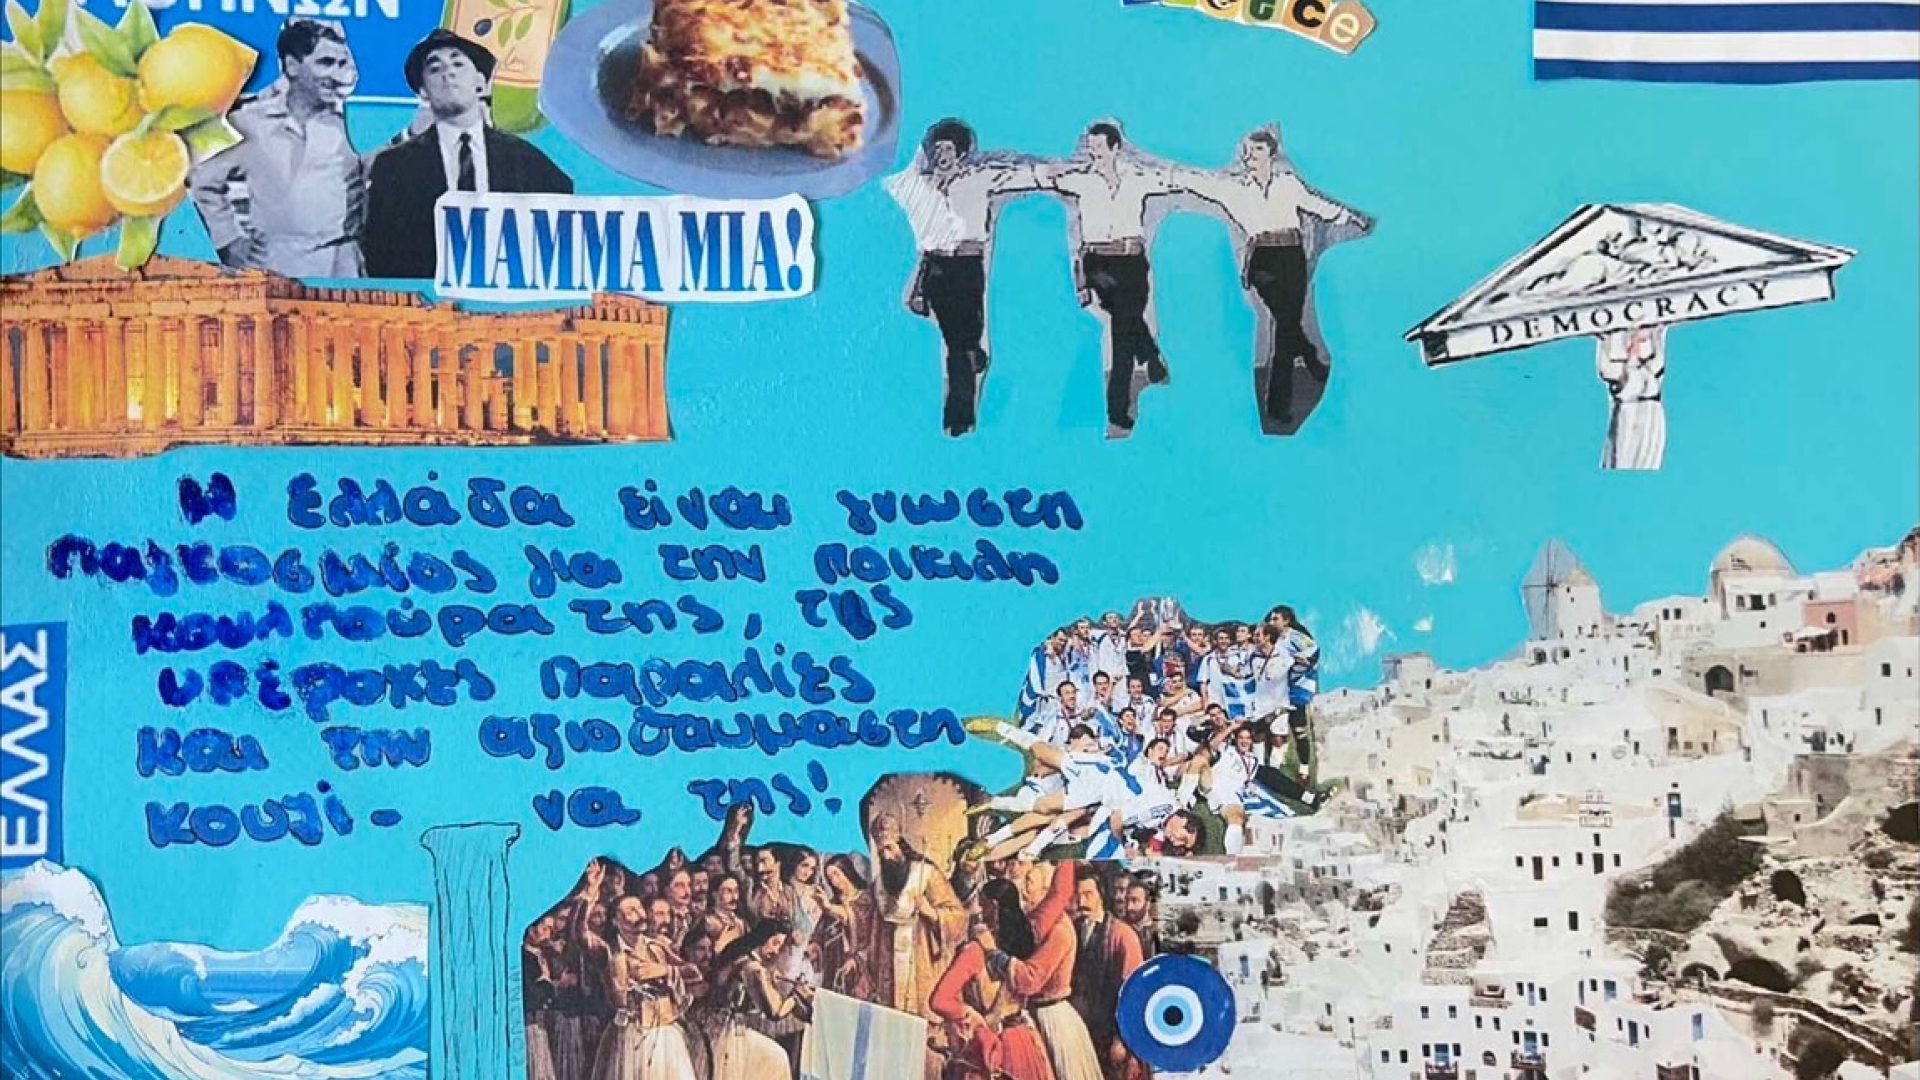 ΑΘΗΝΩΝ
Greece
MAMMA MIA!
DEMOCRACY
Η Ελλάδα είναι γνωστη
παγκοσμίος για την ποικιλη
κουλτούρα της, τις
υπέροχες παραλίες
και την αξιοθαυμαστη
κουζί- να της!
ΕΛΛΑΣ